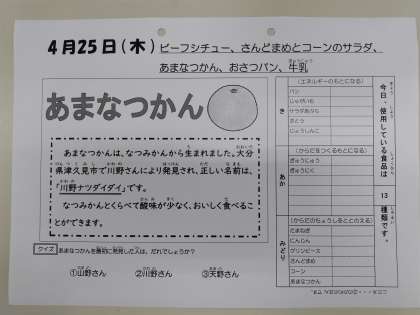 4月25日(木)ビーフシチュー、さんどまめとコーンのサラダ、
あまなつかん、おさつパン、牛乳
あまなつかん
あまなつかんは、なつみかんから生まれました。大分
県津久見市で川野さんにより発見され、正しい名前は、
「川野ナツダイダイ」です。
なつみかんとくらべて酸味が少なく、おいしく食べるこ
とができます。
クイズ
あまなつかんを最初に発見した人は、だれでしょうか？
①山野さん ②川野さん ③天野さん
今日、使用している食品は 13 種類です。
き
(エネルギーのもとになる)
パン
じゃがいも
サラダあぶら
さとう
あか
(からだをつくるもとになる)
ぎゅうにゅう
ぎゅうにく
みどり
(からだのちょうしをととのえる)
たまねぎ
にんじん
グリンピース
さんどまめ
コーン
あまなつかん